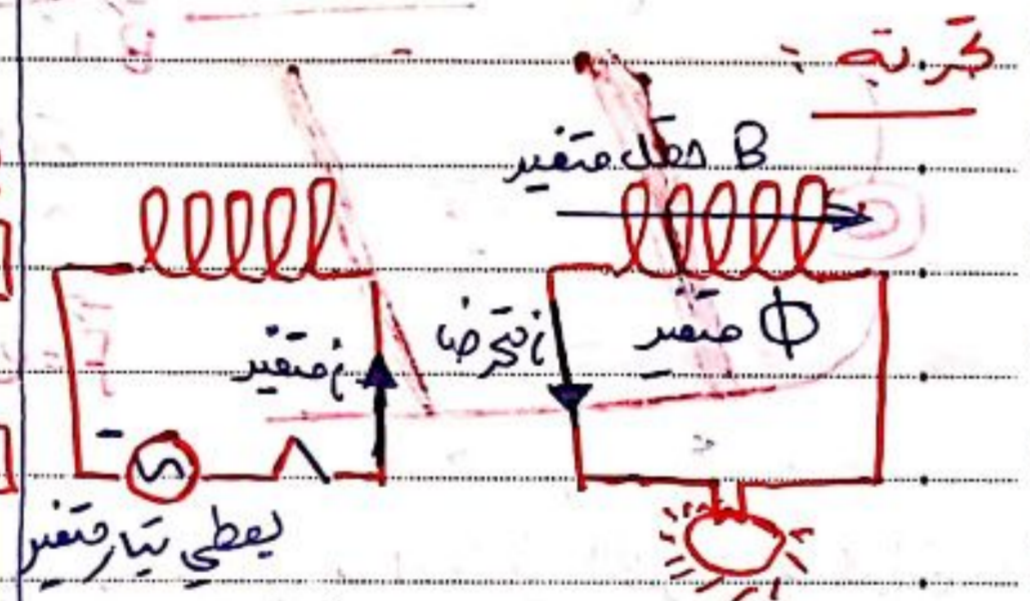 تجربة :
B حقل متغير
i متغير
i متحرضة
Φ متغير
يعطي تيار متغير